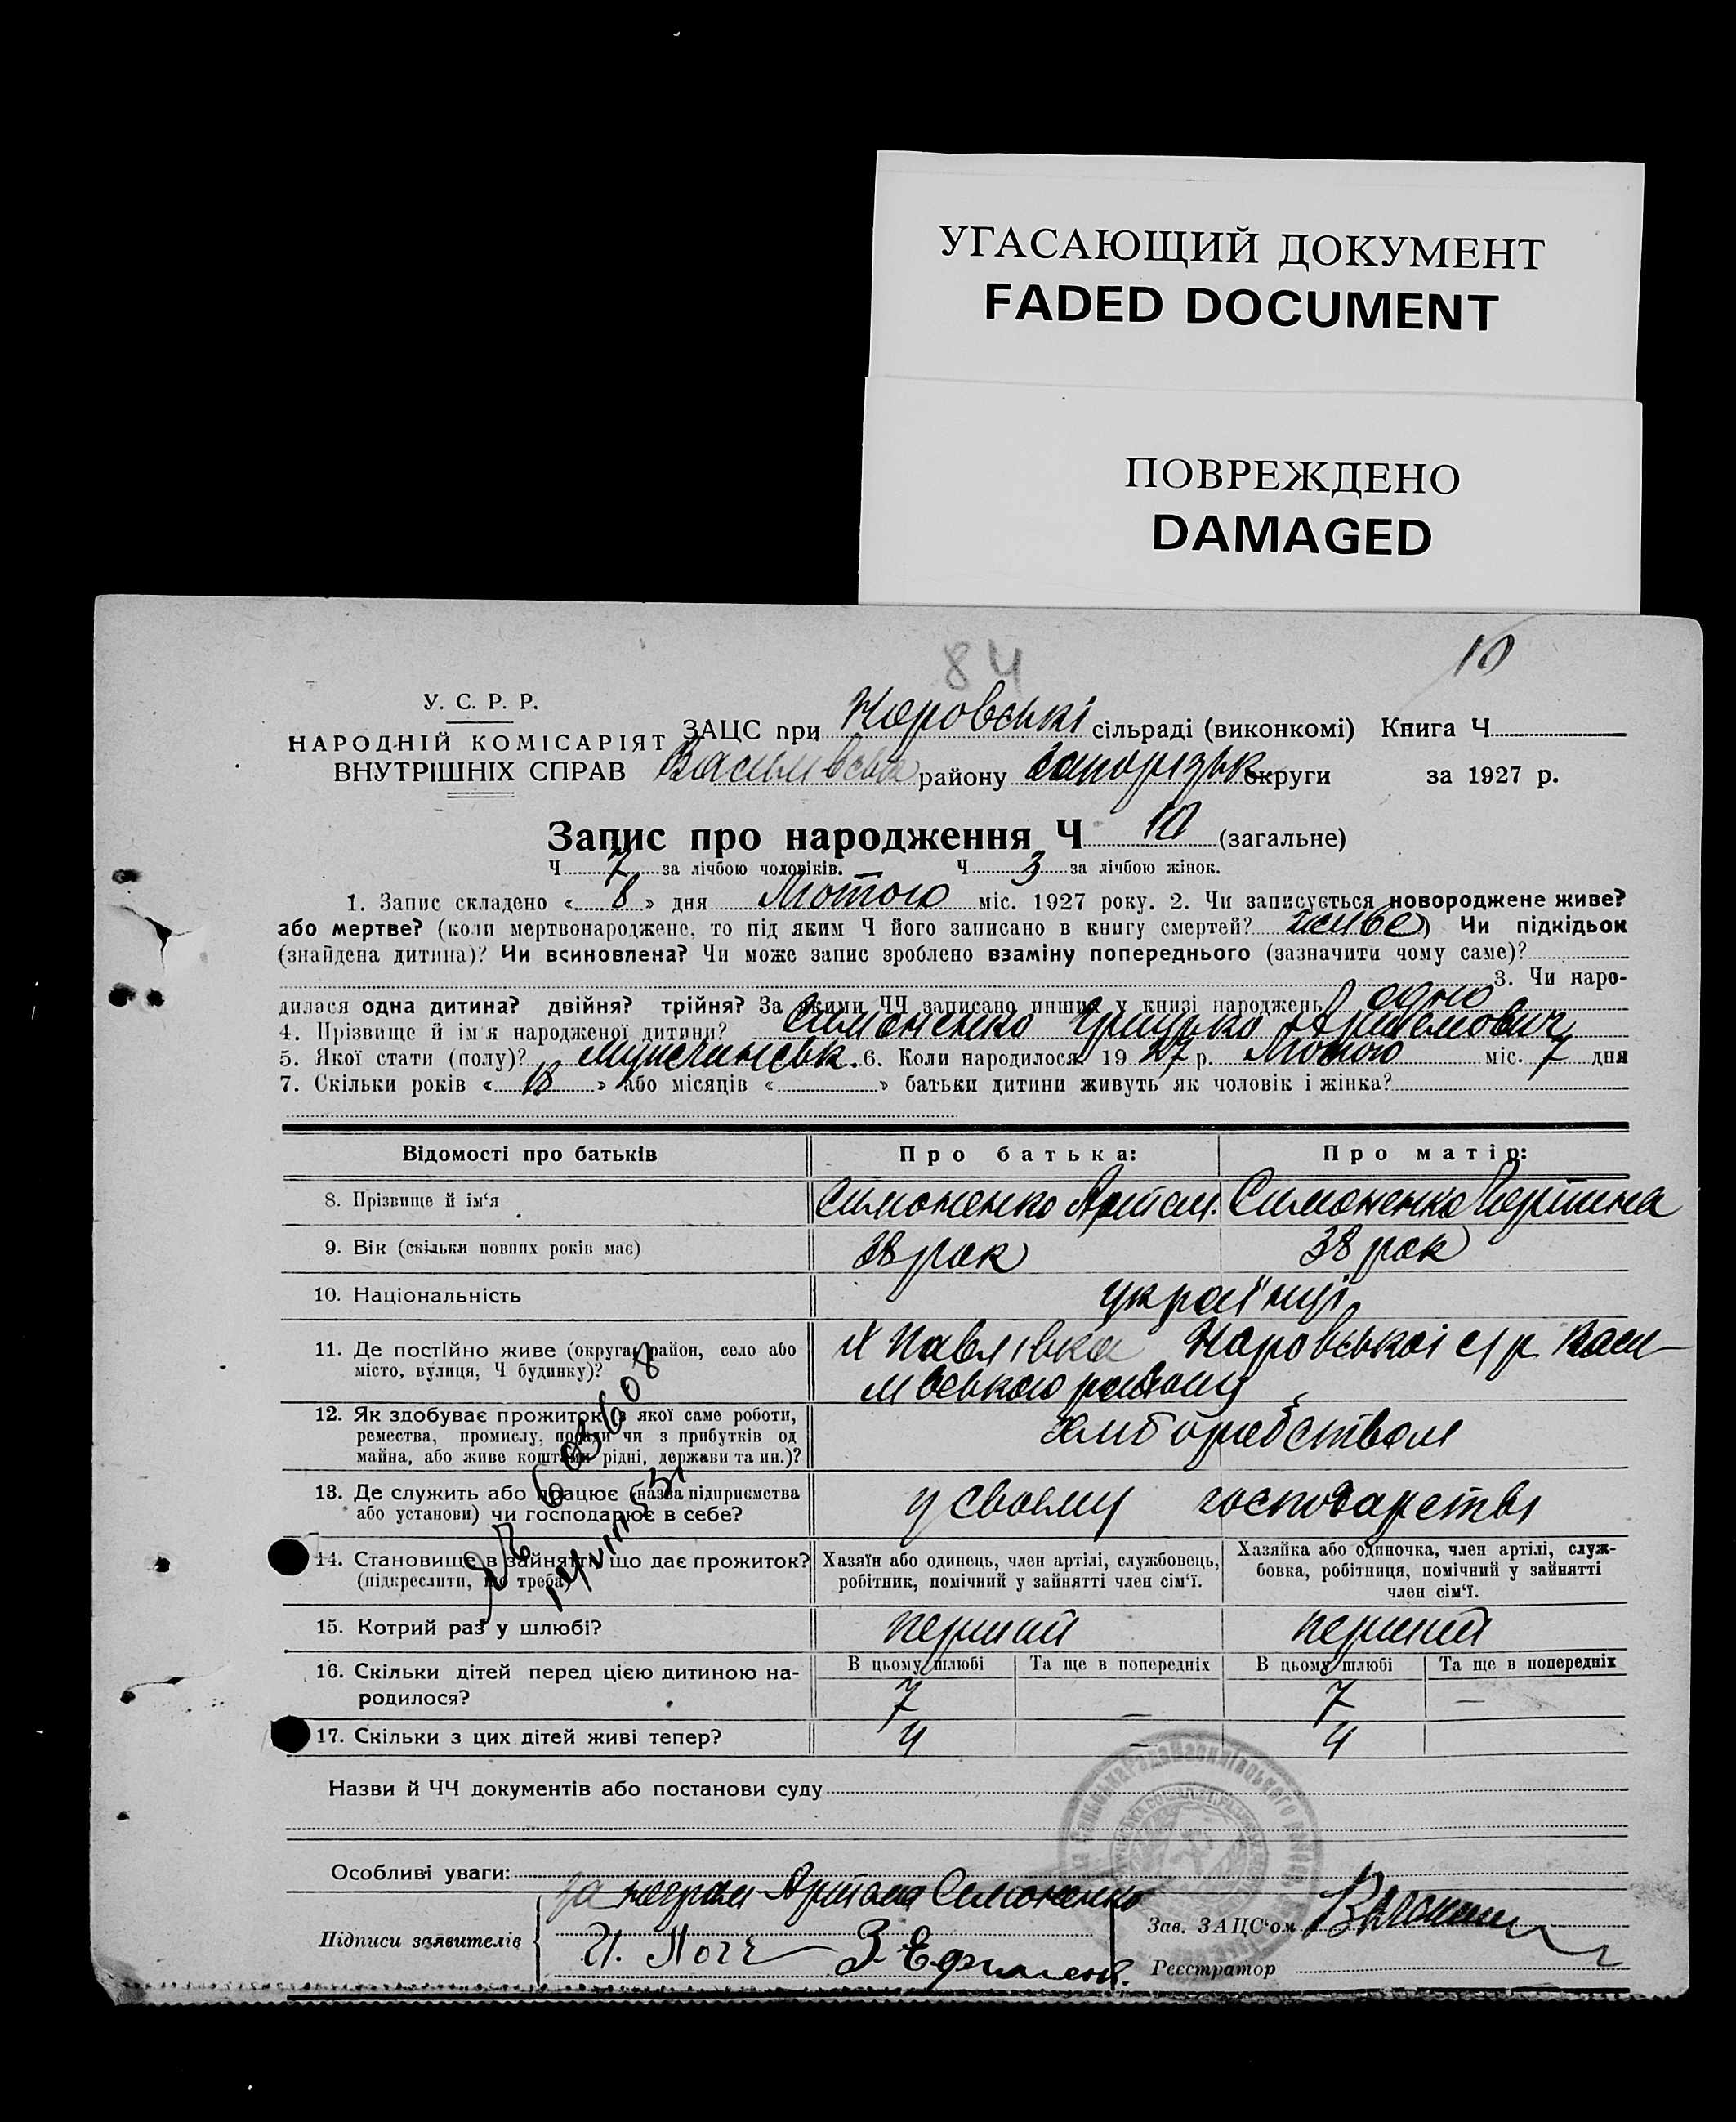 УГАСАЮЩИЙ ДОКУМЕНТ
FADED DOCUMENT
ПОВРЕЖДЕНО
DAMAGED
84
10
У. С. Р. Р.
НАРОДНІЙ КОМІСАРІЯТ
ВНУТРІШНІХ СПРАВ
ЗАЦС при сільраді (виконкомі) Книга Ч
Василівськ району Запорізьк округи за 1927 р.
Запис про народження Ч 10 (загальне)
Ч 7 за лічбою чоловіків. Ч 3 за лічбою жінок.
1. Запис складено « 8 » дня Лютого міс. 1927 року. 2. Чи записується новороджене живе?
або мертве? (коли мертвонароджене, то під яким Ч його записано в книгу смертей? живе) Чи підкідьок
(знайдена дитина)? Чи всиновлена? Чи може запис зроблено взаміну попереднього (зазначити чому саме)?
3. Чи наро-
дилася одна дитина? двійня? трійня? За якими ЧЧ записано инших у книзі народжень? одно
4. Прізвище й ім'я народженої дитини? Симоненко Грицько Артемович
5. Якої стати (полу)? 6. Коли народилося? 19 27 р. Лютого міс. 7 дня
7. Скільки років « 18 » або місяців « » батьки дитини живуть як чоловік і жінка?
Відомості про батьків
Про батька:
Про матір:
8. Прізвище й ім'я
Симоненко Артем.
Симоненко
9. Вік (скільки повних років має)
38 рок
38 рок
10. Національність
українці
11. Де постійно живе (округа, район, село або
місто, вулиця, Ч будинку)?
Х Павлівка с/р Васи-
лівського району
12. Як здобуває прожиток (з якої саме роботи,
ремества, промислу, посади чи з прибутків од
майна, або живе коштами рідні, держави та ин.)?
13. Де служить або працює (назва підприємства
або установи) чи господарює в себе?
у своєму господарстві
14. Становище в зайнятті, що дає прожиток?
(підкреслити, що треба)
Хазяїн або одинець, член артілі, службовець,
робітник, помічний у зайнятті член сім'ї.
Хазяйка або одиночка, член артілі, служ-
бовка, робітниця, помічний у зайнятті
член сім'ї.
15. Котрий раз у шлюбі?
перший
перший
16. Скільки дітей перед цією дитиною на-
родилося?
В цьому шлюбі
Та ще в попередніх
В цьому шлюбі
Та ще в попередніх
7
—
7
—
17. Скільки з цих дітей живі тепер?
4
—
4
Назви й ЧЧ документів або постанови суду
Особливі уваги:
за неграм Артема Симоненко
Підписи заявителів
Зав. ЗАЦС'ом
Реєстратор
603608